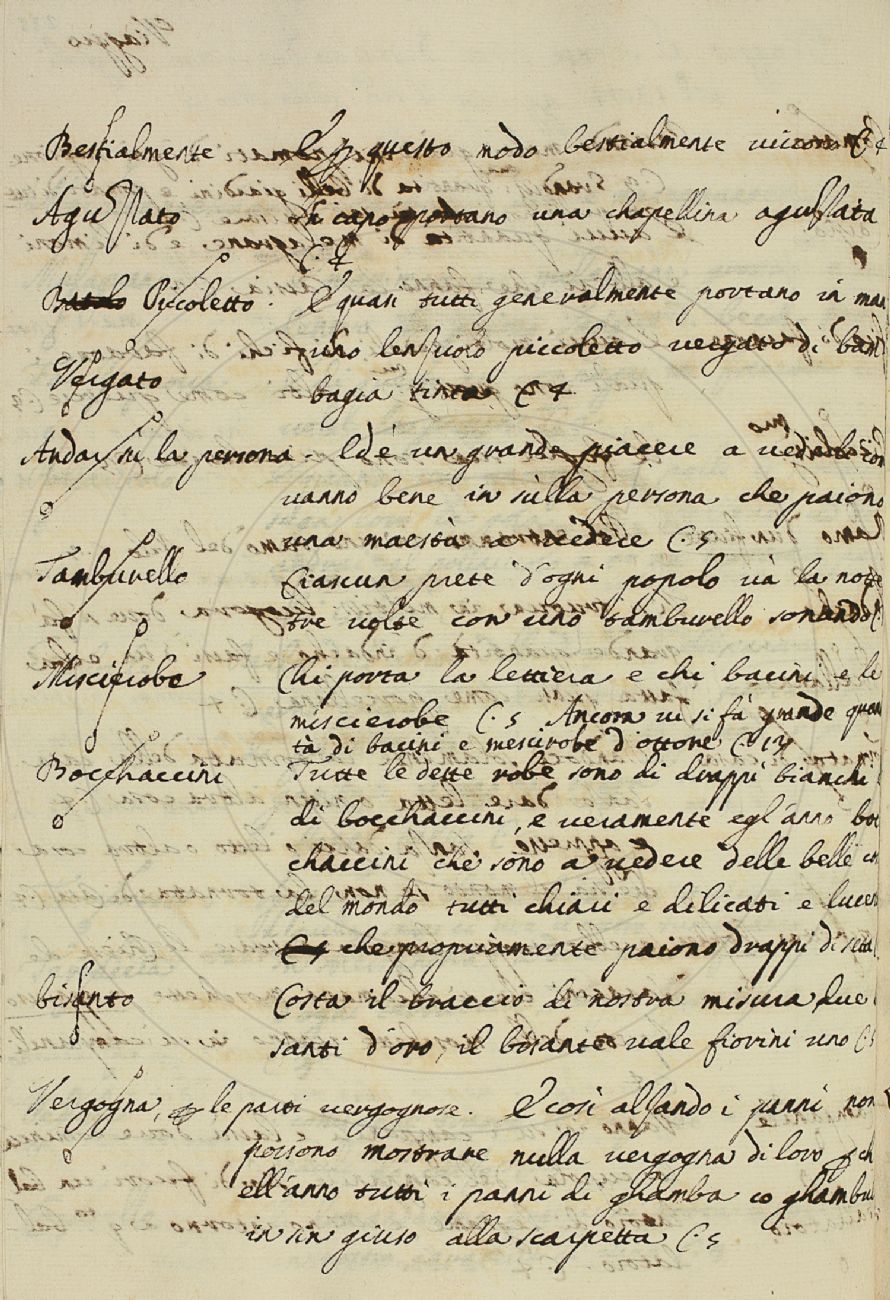 Bestialmente E p questo modo bestialmente vivono C. 4
Aguzzato In capo portano una chapellina aguzzata
C. 4
Piccoletto. E quasi tutti generalmente portano in man
Vergato uno lenzuolo piccoletto vergato di bam
bagia tinta C. 4
Andar su la persona. Ed è un grande piacere a vedelli con
vanno bene in sulla persona che paiono
una maestà a vedere C. 5
Tamburello Ciascun prete d'ogni popolo và la notte
tre volte con uno tamburello sonando C.
Miscierobe Chi porta la lettiera e chi bacini e li
miscierobe C. 5 Ancora vi si fà grande quan
tà di bacini e mescirobe d'ottone C. 13
Bocchaccini Tutte le dette robe sono di drappi bianchi
di bocchaccini, e veramente egl'anno boc
chaccini che sono a vedere delle belle co
del mondo tutti chiari e dilicati e lucen
che propriamente paiono drappi di seta
bisanto Costa il braccio di nostra misura due
santi d'oro, il bisante vale fiorini uno C. 5
Vergogna, le parti vergognose. E così alzando i panni non
possono mostrare nulla vergogna di loro p ch
ell'anno tutti i panni di ghamba co ghambu
in sin giuso alla scarpetta C. 5